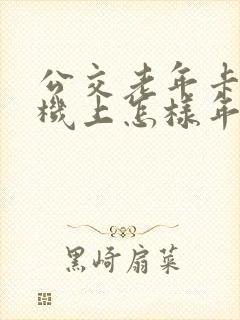 公交老年卡
機上怎樣年
黑崎扇菜